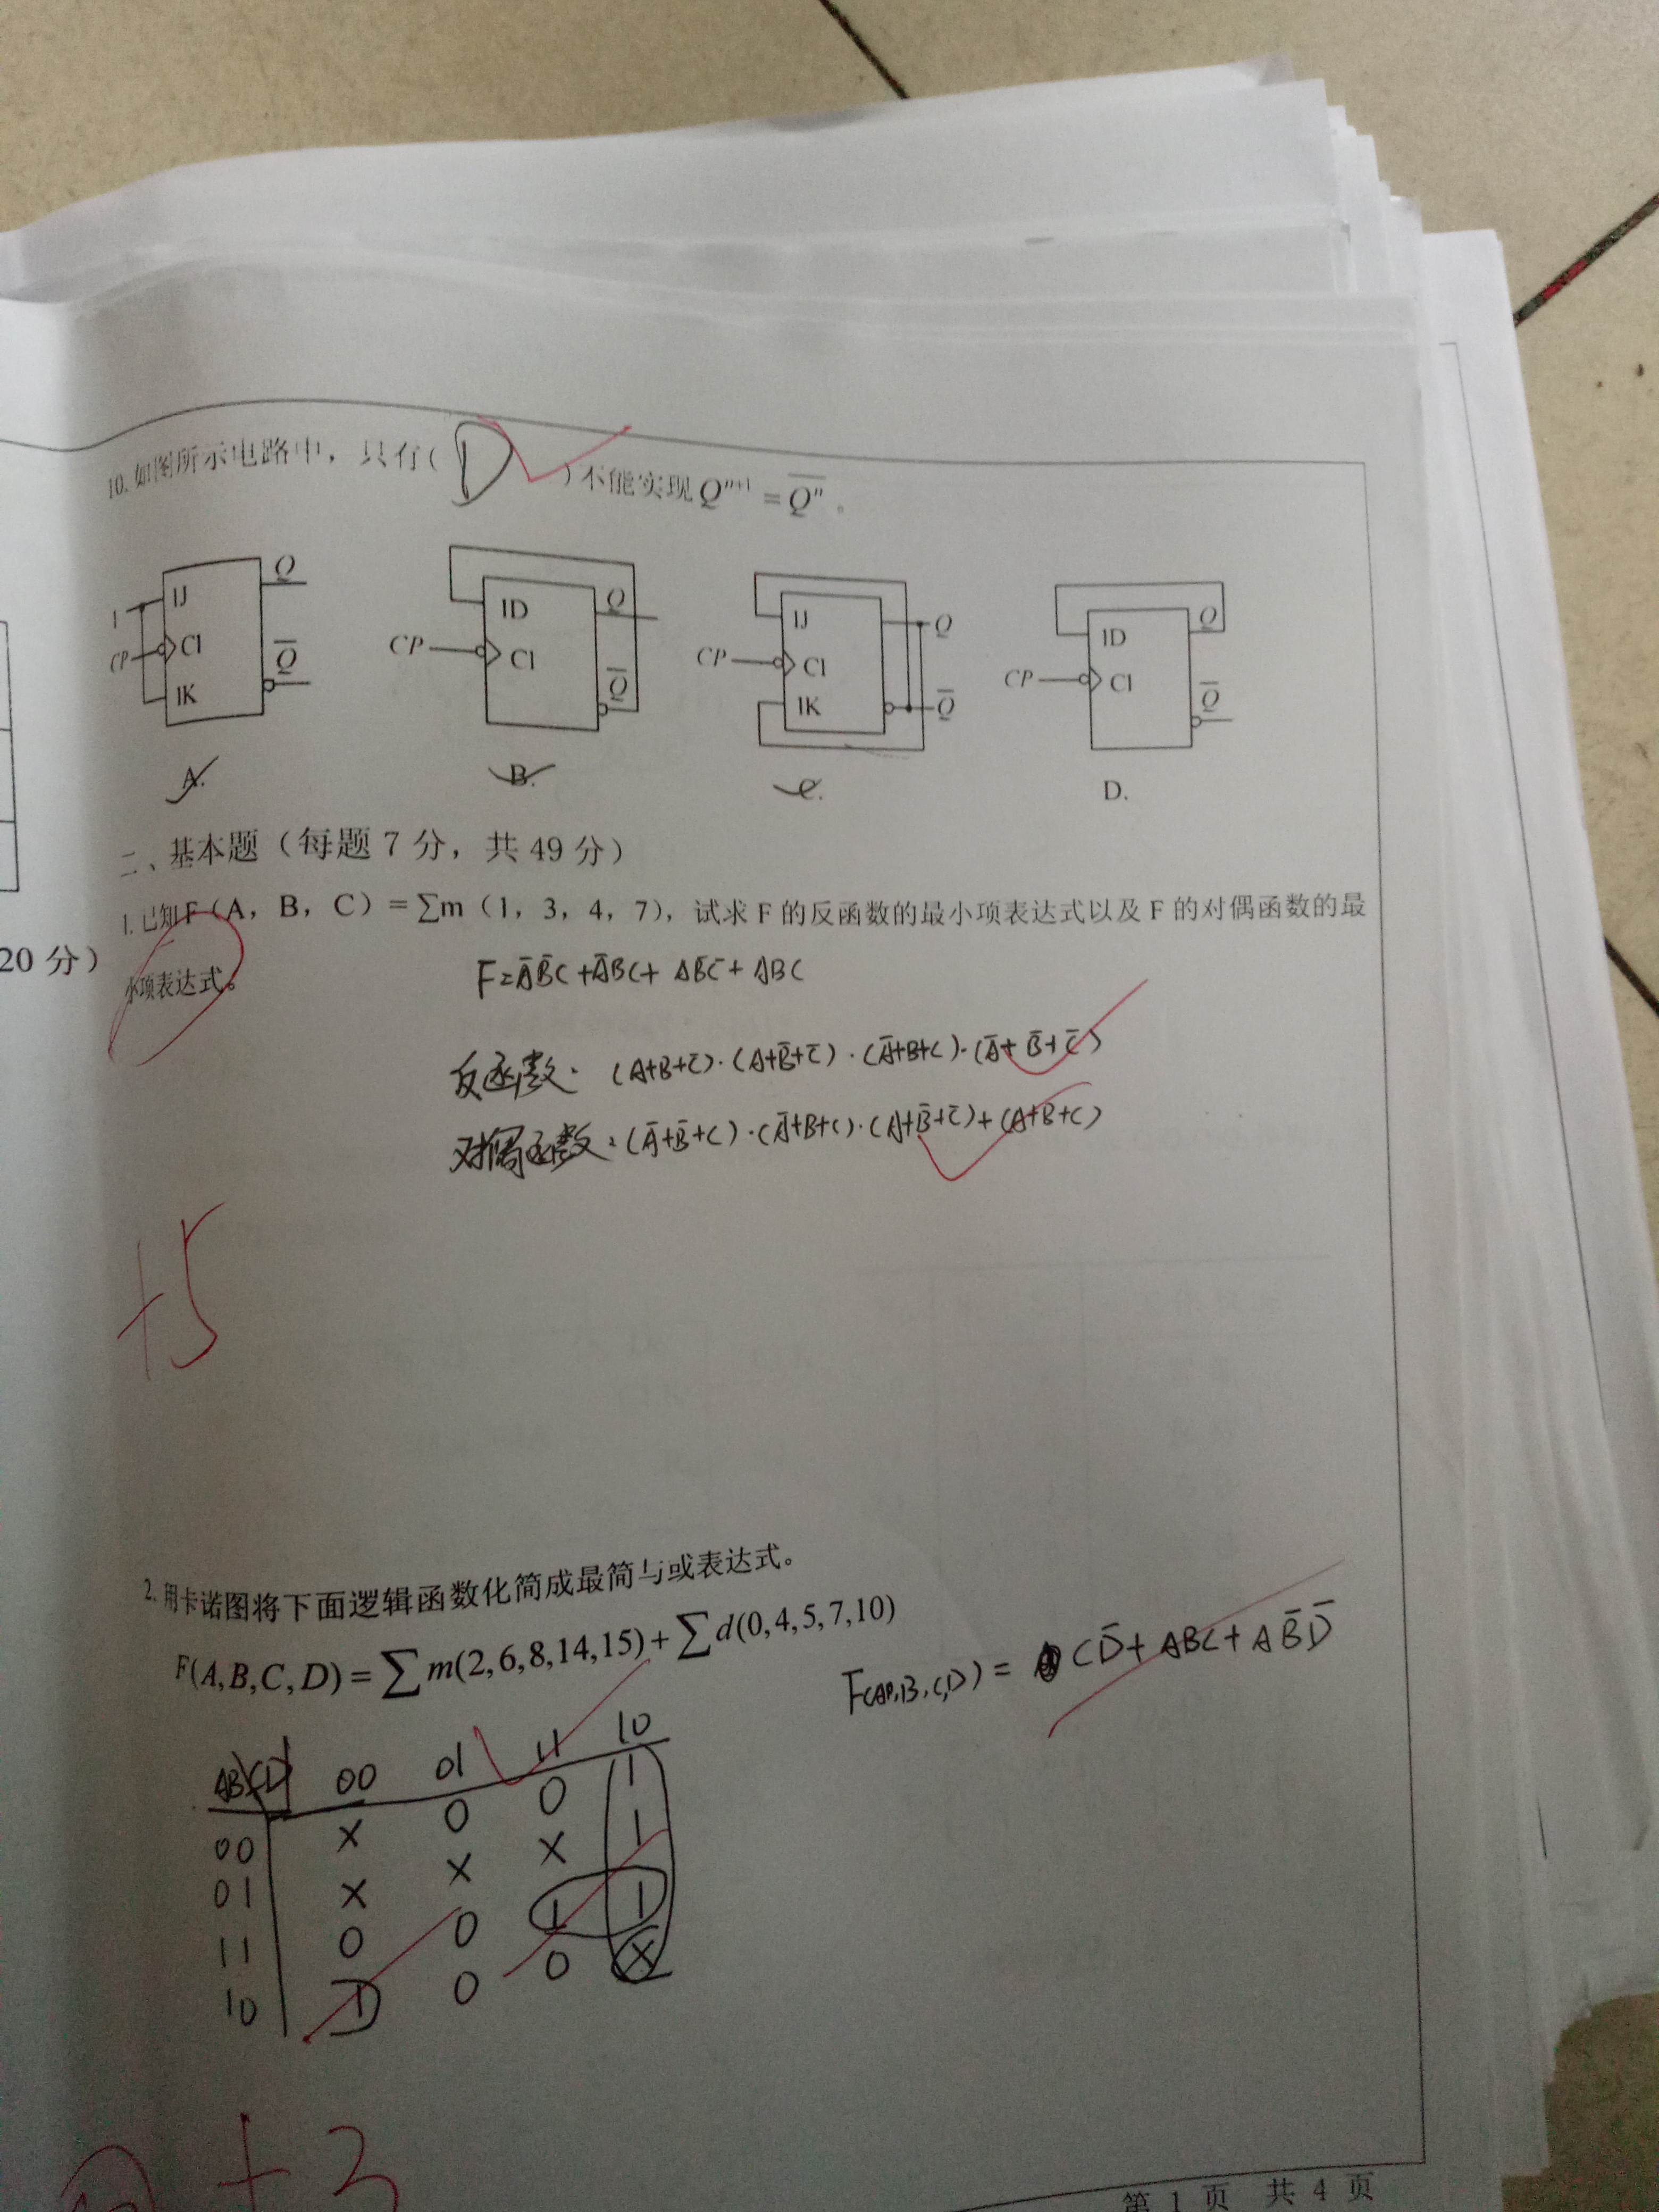 10. 如图所示电路中，只有( D )不能实现 Qⁿ⁺¹ = Q̅ⁿ 。
1 IJ Q CP C1 IK Q̅
CP ID Q C1 Q̅
CP IJ Q C1 IK Q̅
CP ID Q C1 Q̅
A. B. C. D.
二、基本题（每题 7 分，共 49 分）
1. 已知 F（A，B，C）＝∑m（1，3，4，7），试求 F 的反函数的最小项表达式以及 F 的对偶函数的最
20 分）
小项表达式。
F=A̅B̅C+A̅BC+AB̅C̅+ABC
反函数: (A+B+C̅)·(A+B̅+C̅)·(A̅+B+C)·(A̅+B̅+C̅)
对偶函数: (A̅+B̅+C)·(A̅+B+C)·(A+B̅+C̅)+(A+B+C)
+5
2. 用卡诺图将下面逻辑函数化简成最简与或表达式。
F(A,B,C,D) = ∑m(2,6,8,14,15) + ∑d(0,4,5,7,10)
F(A,B,C,D) = CD̅+ABC+AB̅D̅
AB CD 00 01 11 10
00 × 0 0 1
01 × × × 1
11 0 0 1 1
10 1 0 0 ×
+3
第 1 页 共 4 页